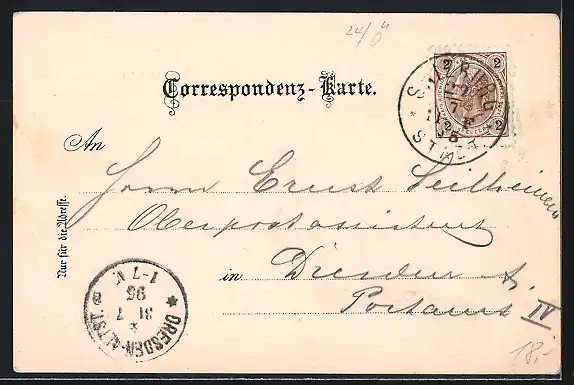 24/0"
Correspondenz-Karte.
2 2
SALZBURG
STADT
2 2
An
Herrn Ernst Seilheimer
Oberpostassistent
in Dresden A.
Postamt IV
Nur für die Adresse.
DRESDEN-ALTST.
31 7
95
1-7 N.
8
18,-